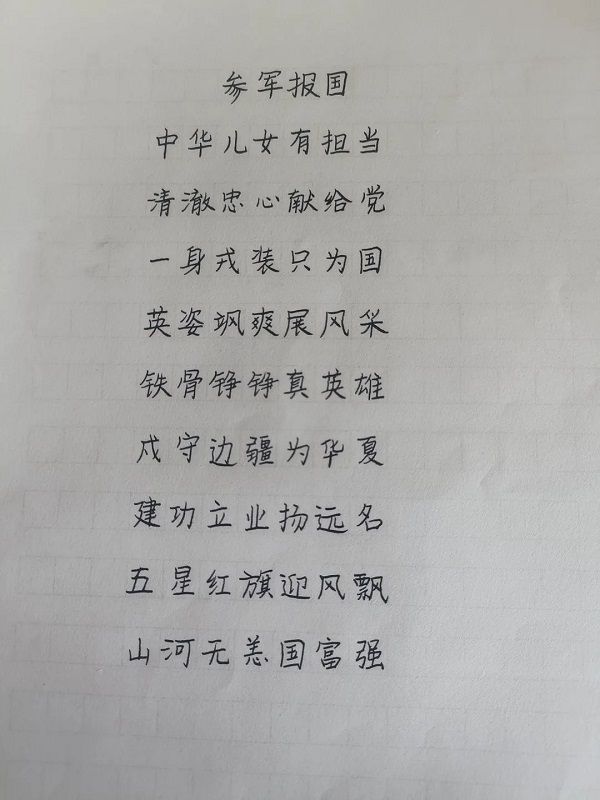 参军报国
中华儿女有担当
清澈忠心献给党
一身戎装只为国
英姿飒爽展风采
铁骨铮铮真英雄
戍守边疆为华夏
建功立业扬远名
五星红旗迎风飘
山河无恙国富强